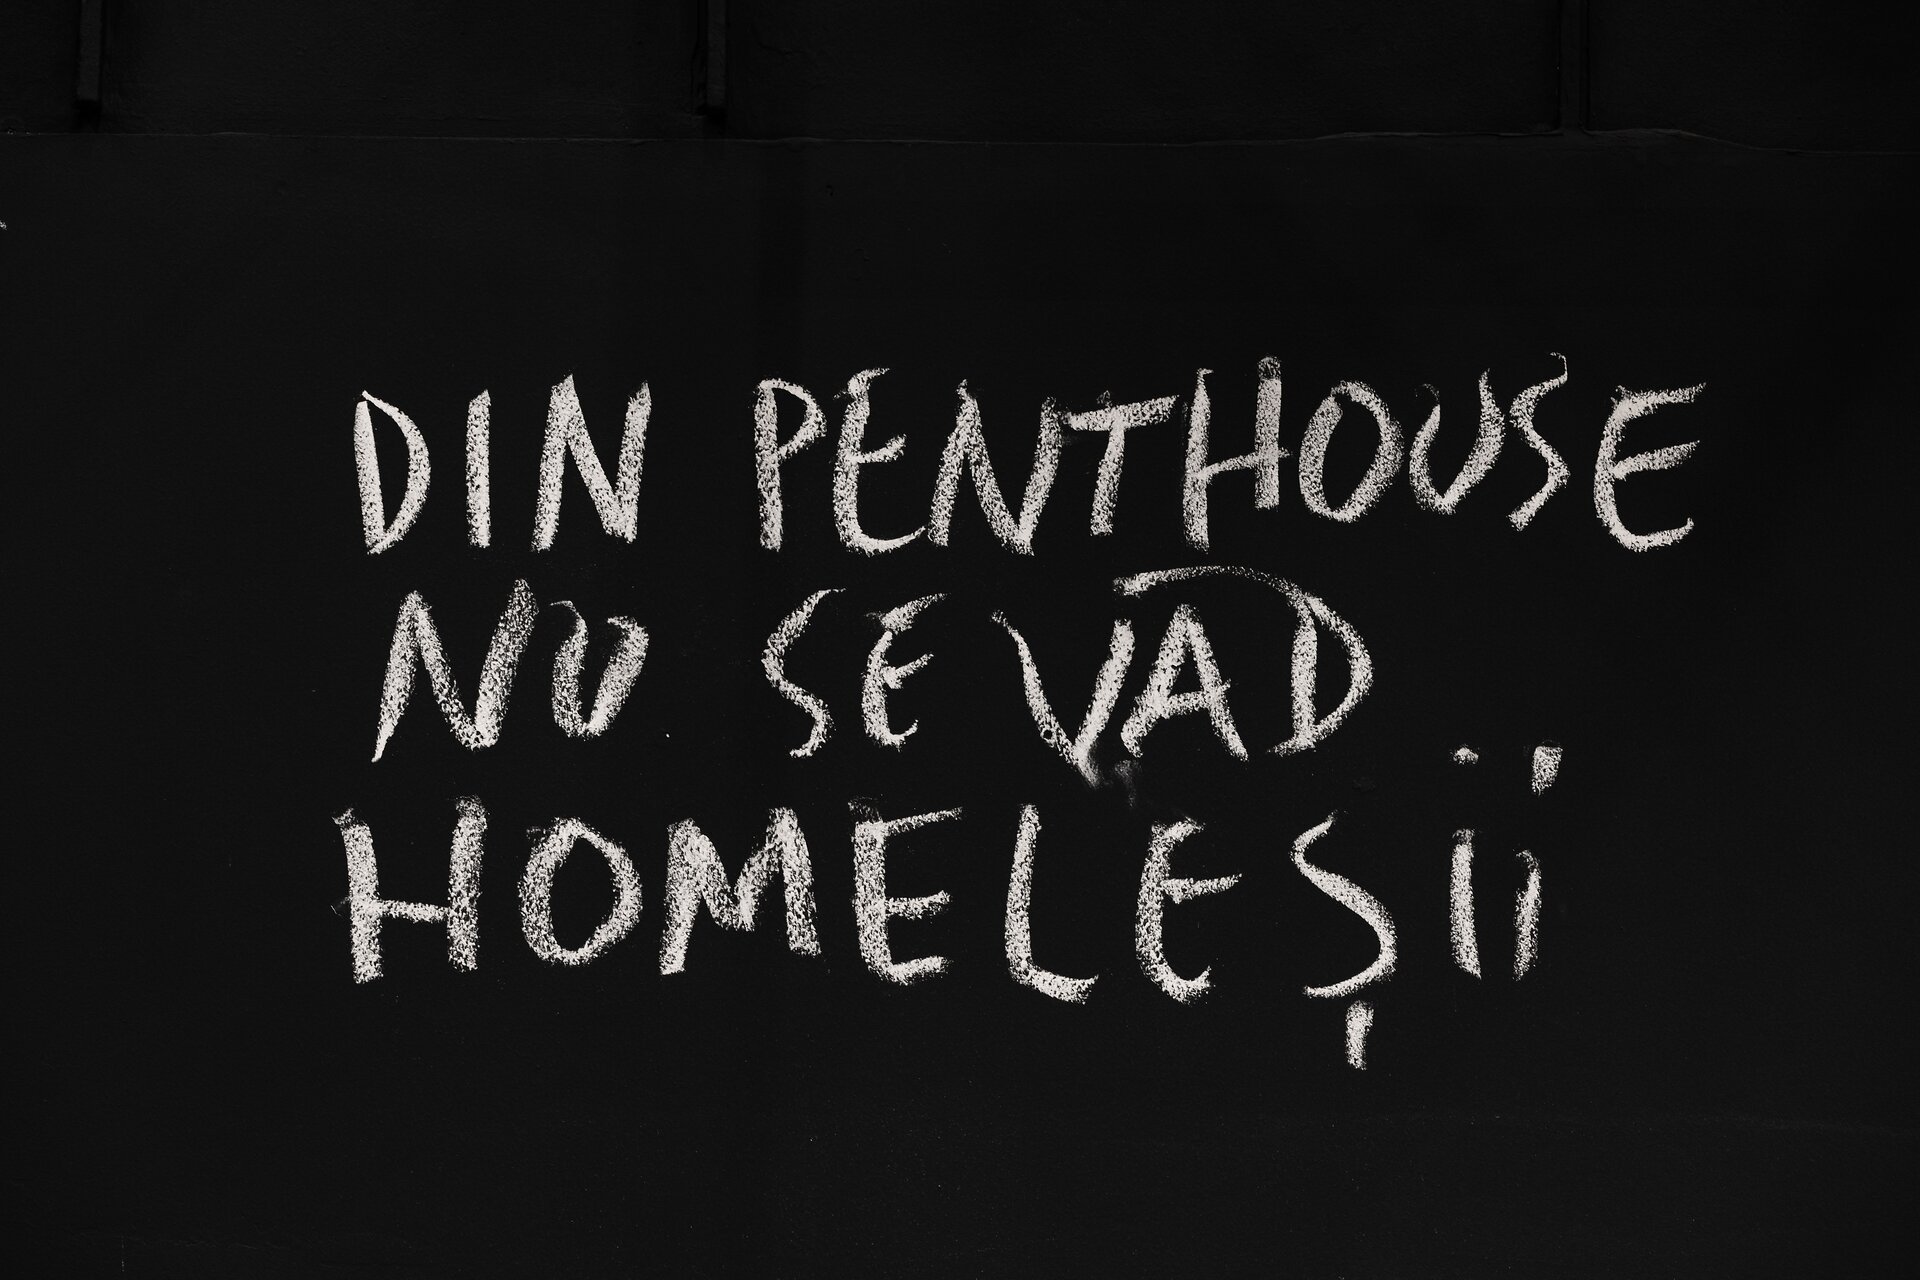 DIN PENTHOUSE
NU SE VAD
HOMELEȘii